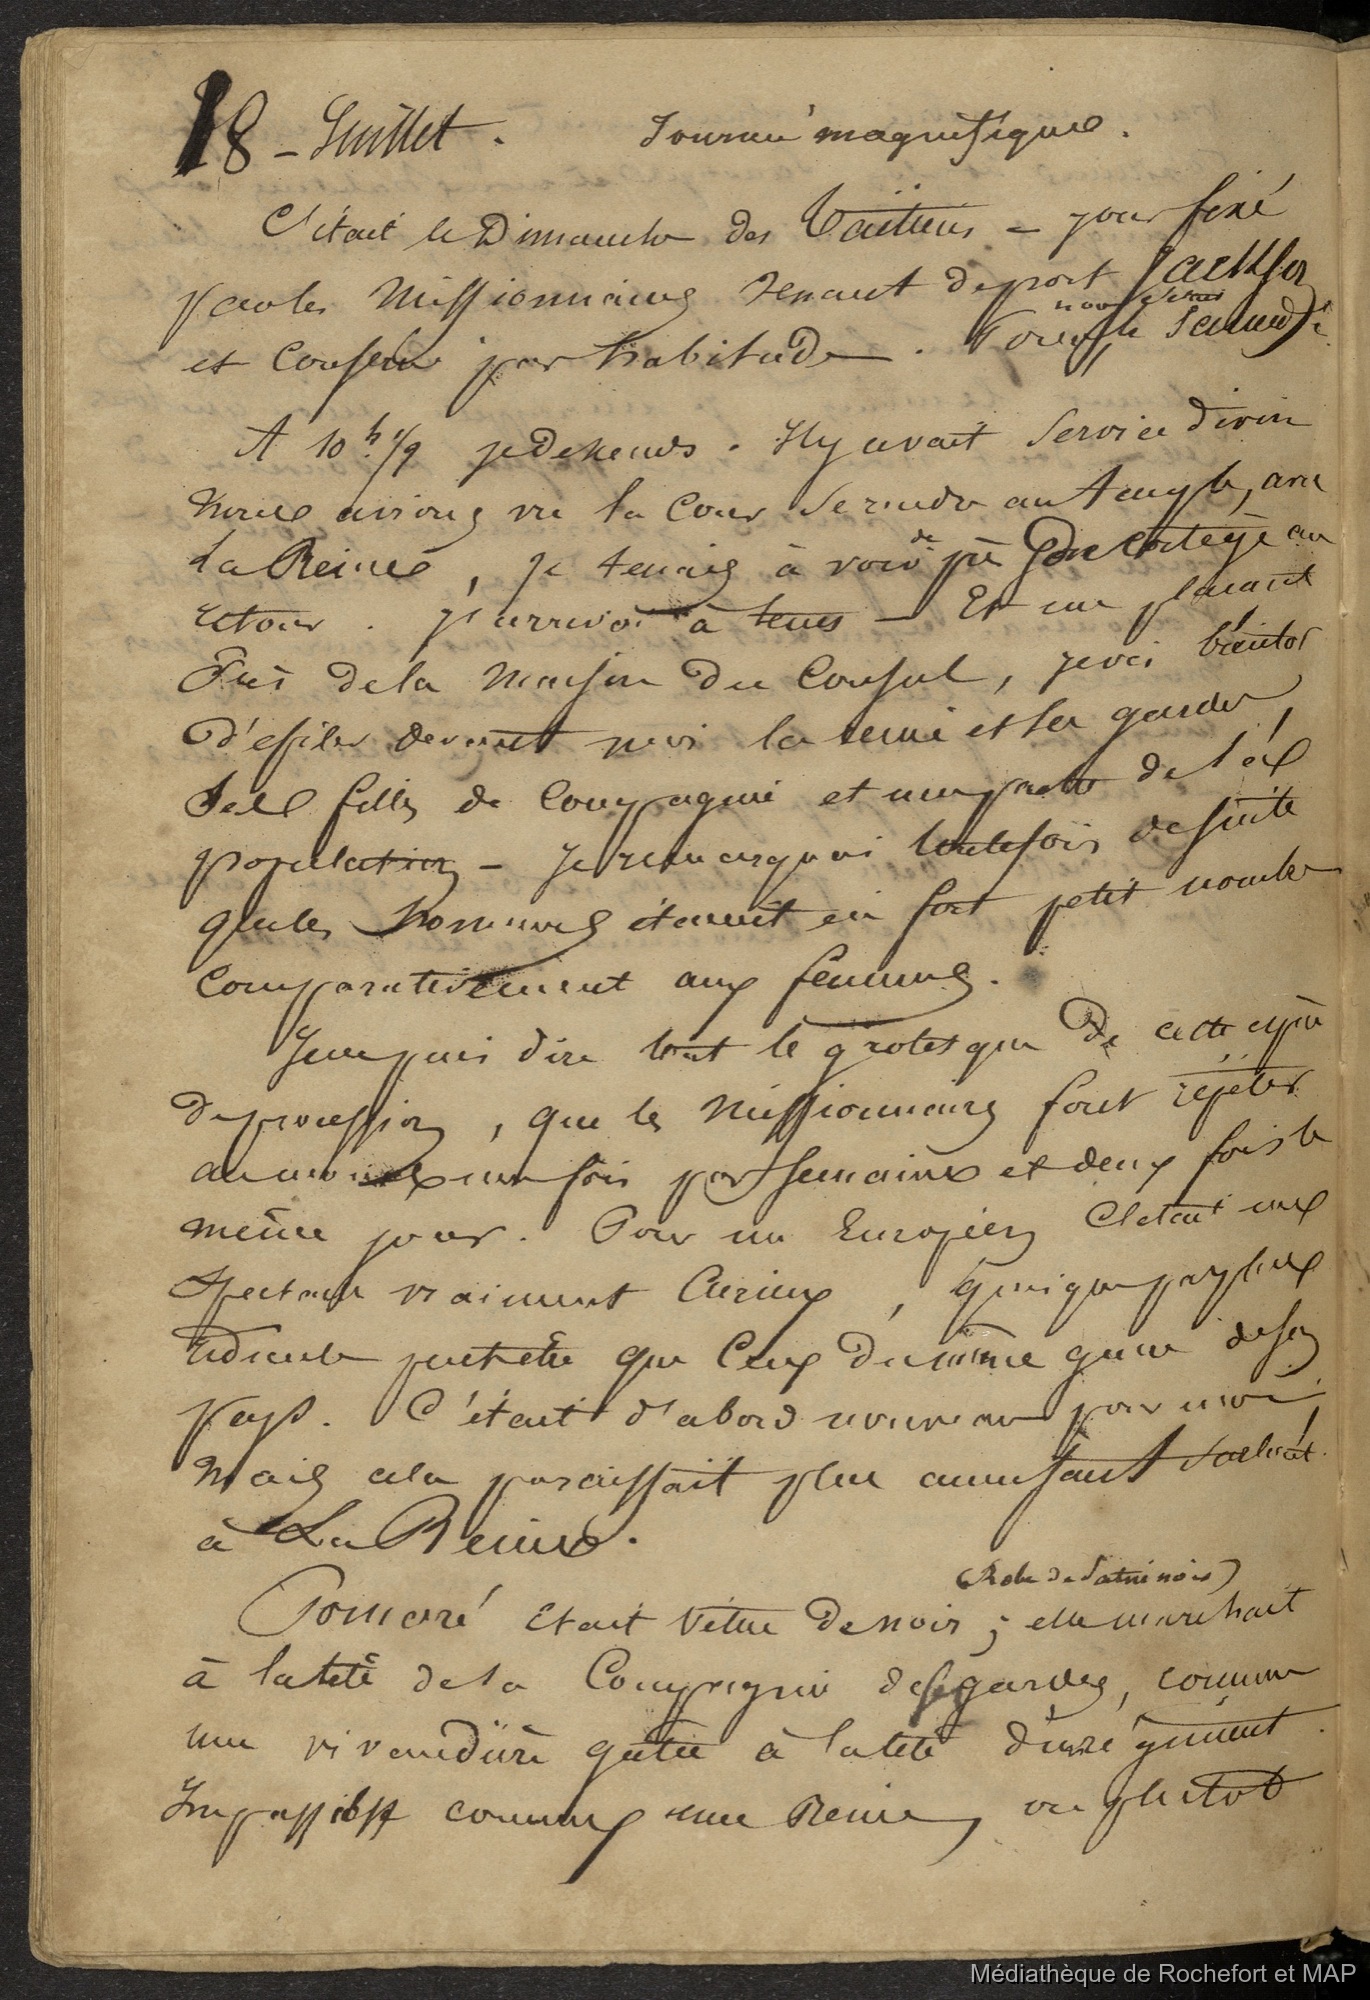 18 - Juillet. Journée magnifique.
C'était le Dimanche des Taïtiens - jour fixé
par les Missionnaires venant de port Jackson
et conservé par habitude. Pour nous le Samedi.
A 10 h. 1/2 je descends. Il y avait Service divin
Nous avions vu la Cour se rendre au temple, avec
La Reine, je tenais à voir de près son cortège au
retour. J'arrivai à tems - Et me plaçant
Près de la Maison du Consul, je vis bientôt
Défiler devant moi la reine et sa garde,
Ses filles de Compagnie et une partie de la
population - Je remarquai toutefois de suite
que les hommes étaient en fort petit nombre
Comparativement aux femmes.
Je ne puis dire tout le grotesque de cette espèce
de procession, que les Missionnaires font répéter
au moins une fois par semaine et deux fois le
même jour. Pour un Européen C'etait une
Spectacle vraiment Curieux, quoique pas plus
ridicule peut-être que Ceux du même genre de son
pays. C'était d'abord nouveau pour moi,
Mais cela paraissait plus amusant
à La Reine.
(Robe de Satin noir)
Pomaré etait vêtue de noir ; elle marchait
à la tête de la Compagnie des gardes, comme
une vivandière gâtée à la tête d'un régiment.
Impassible comme une Reine, ou plutot